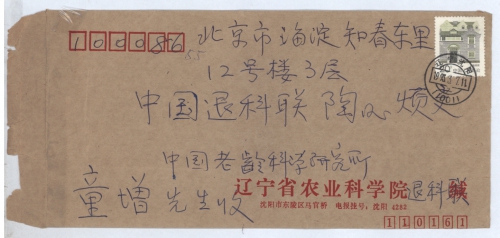 100086
北京市海淀知春东里
12号楼3层
中国退科联 陶 烦交
中国老龄科学研究所
童增先生收
辽宁省农业科学院 退科联
沈阳市东陵区马官桥 电报挂号：沈阳 4282
110161